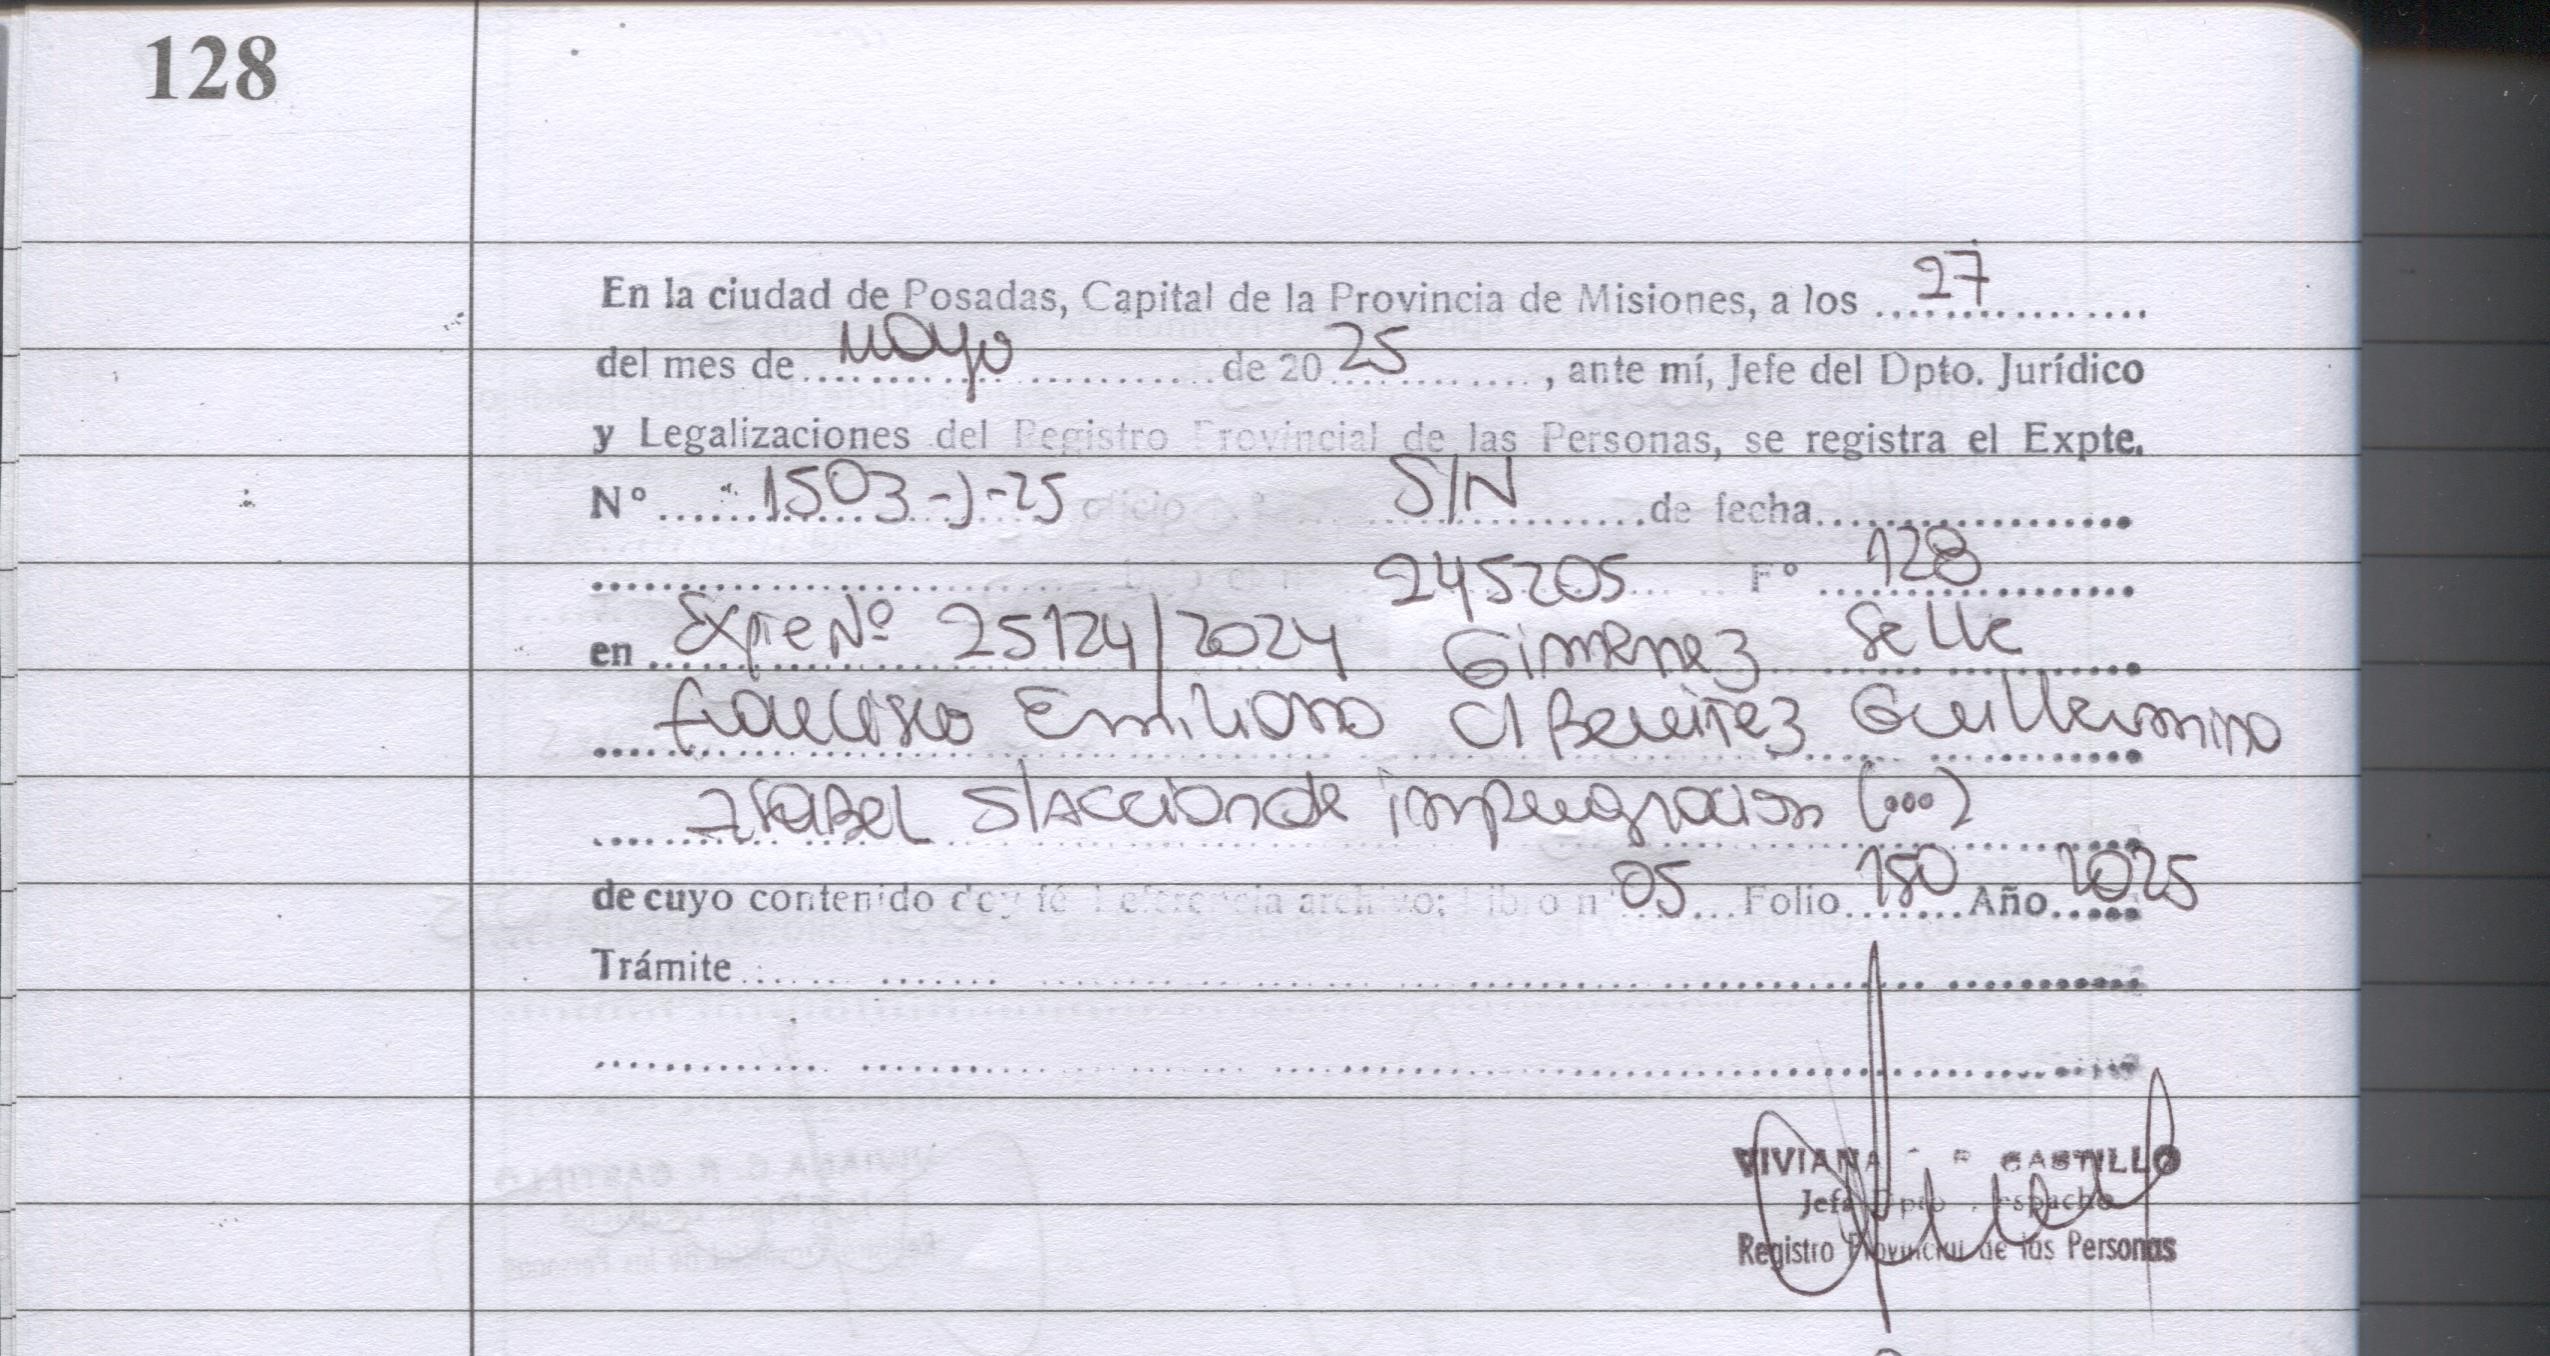 128
En la ciudad de Posadas, Capital de la Provincia de Misiones, a los 27
del mes de mayo de 20 25, ante mí, Jefe del Dpto. Jurídico
y Legalizaciones del Registro Provincial de las Personas, se registra el Expte.
Nº 1503-J-25 oficio S/N de fecha
245205 Fº 128
en Expte Nº 25124/2024 Gimenez Selle
francisco Emiliano C/ Benitez Guillermina
Isabel S/Accion de impugnacion (...)
de cuyo contenido doy fé. Referencia archivo: Libro nº 05 Folio 150 Año 2025
Trámite
VIVIANA CASTILLO
Jefa Dpto. Despacho
Registro Provincial de las Personas